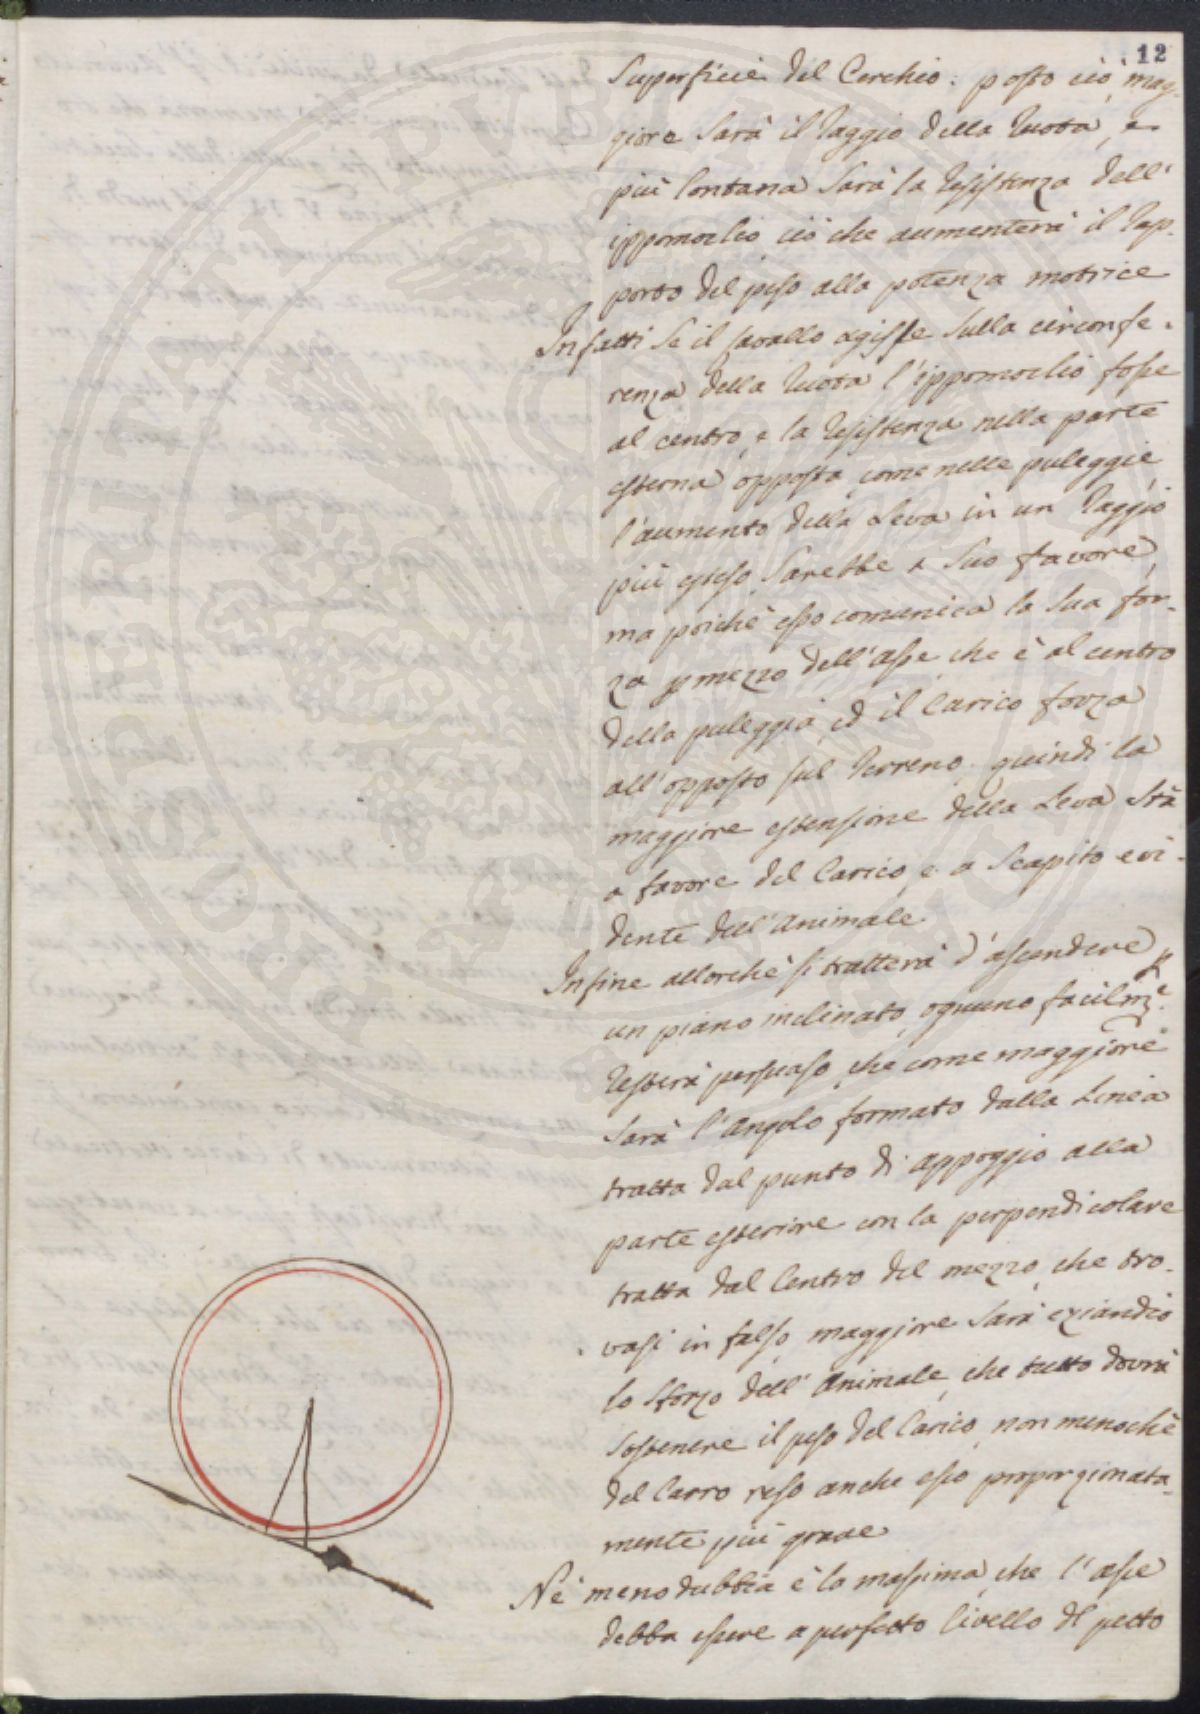 12
Superficie del Cerchio: posto ciò, mag-
giore Sarà il Raggio della Ruota, e
più lontana Sarà la Resistenza dell'
ippomoclio ciò che aumenterà il Rap-
porto del peso alla potenza motrice
Infatti Se il Cavallo agisse Sulla circonfe-
renza della Ruota l'ippomoclio fosse
al centro, e la Resistenza nella parte
esterna opposta, come nelle puleggie,
l'aumento della Leva in un Raggio
più esteso Sarebbe a Suo favore,
ma poichè esso comunica la Sua for-
za p mezzo dell'asse, che è al centro
della puleggia, ed il Carico forza
all'opposto sul Terreno, quindi la
maggiore estensione della Leva Stà
a favore del Carico, e a Scapito evi-
dente dell'Animale.
Infine allorchè si tratterà d'ascendere p
un piano inclinato, ognuno facilm.e
Resterà persuaso, che come maggiore
Sarà l'Angolo formato dalla Linea
tratta dal punto di appoggio alla
parte esteriore con la perpendicolare
tratta dal Centro del mezzo, che tro-
vasi in falso, maggiore Sarà eziandio
lo Sforzo dell'Animale, che tutto dovrà
Sostenere il peso del Carico, non menochè
del Carro reso anche esso proporzionata-
mente più grave
Nè meno dubbia è la massima, che l'asse
debba essere a perfetto livello del petto